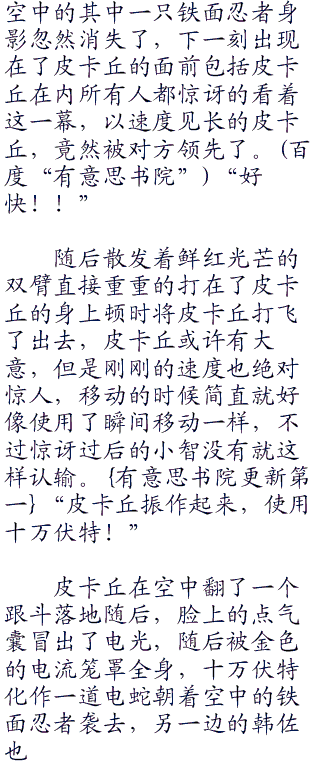 空中的其中一只铁面忍者身
影忽然消失了，下一刻出现
在了皮卡丘的面前包括皮卡
丘在内所有人都惊讶的看着
这一幕，以速度见长的皮卡
丘，竟然被对方领先了。(百
度“有意思书院”）“好
快！！”
随后散发着鲜红光芒的
双臂直接重重的打在了皮卡
丘的身上顿时将皮卡丘打飞
了出去，皮卡丘或许有大
意，但是刚刚的速度也绝对
惊人，移动的时候简直就好
像使用了瞬间移动一样，不
过惊讶过后的小智没有就这
样认输。{有意思书院更新第
一}“皮卡丘振作起来，使用
十万伏特！”
皮卡丘在空中翻了一个
跟斗落地随后，脸上的点气
囊冒出了电光，随后被金色
的电流笼罩全身，十万伏特
化作一道电蛇朝着空中的铁
面忍者袭去，另一边的韩佐
也